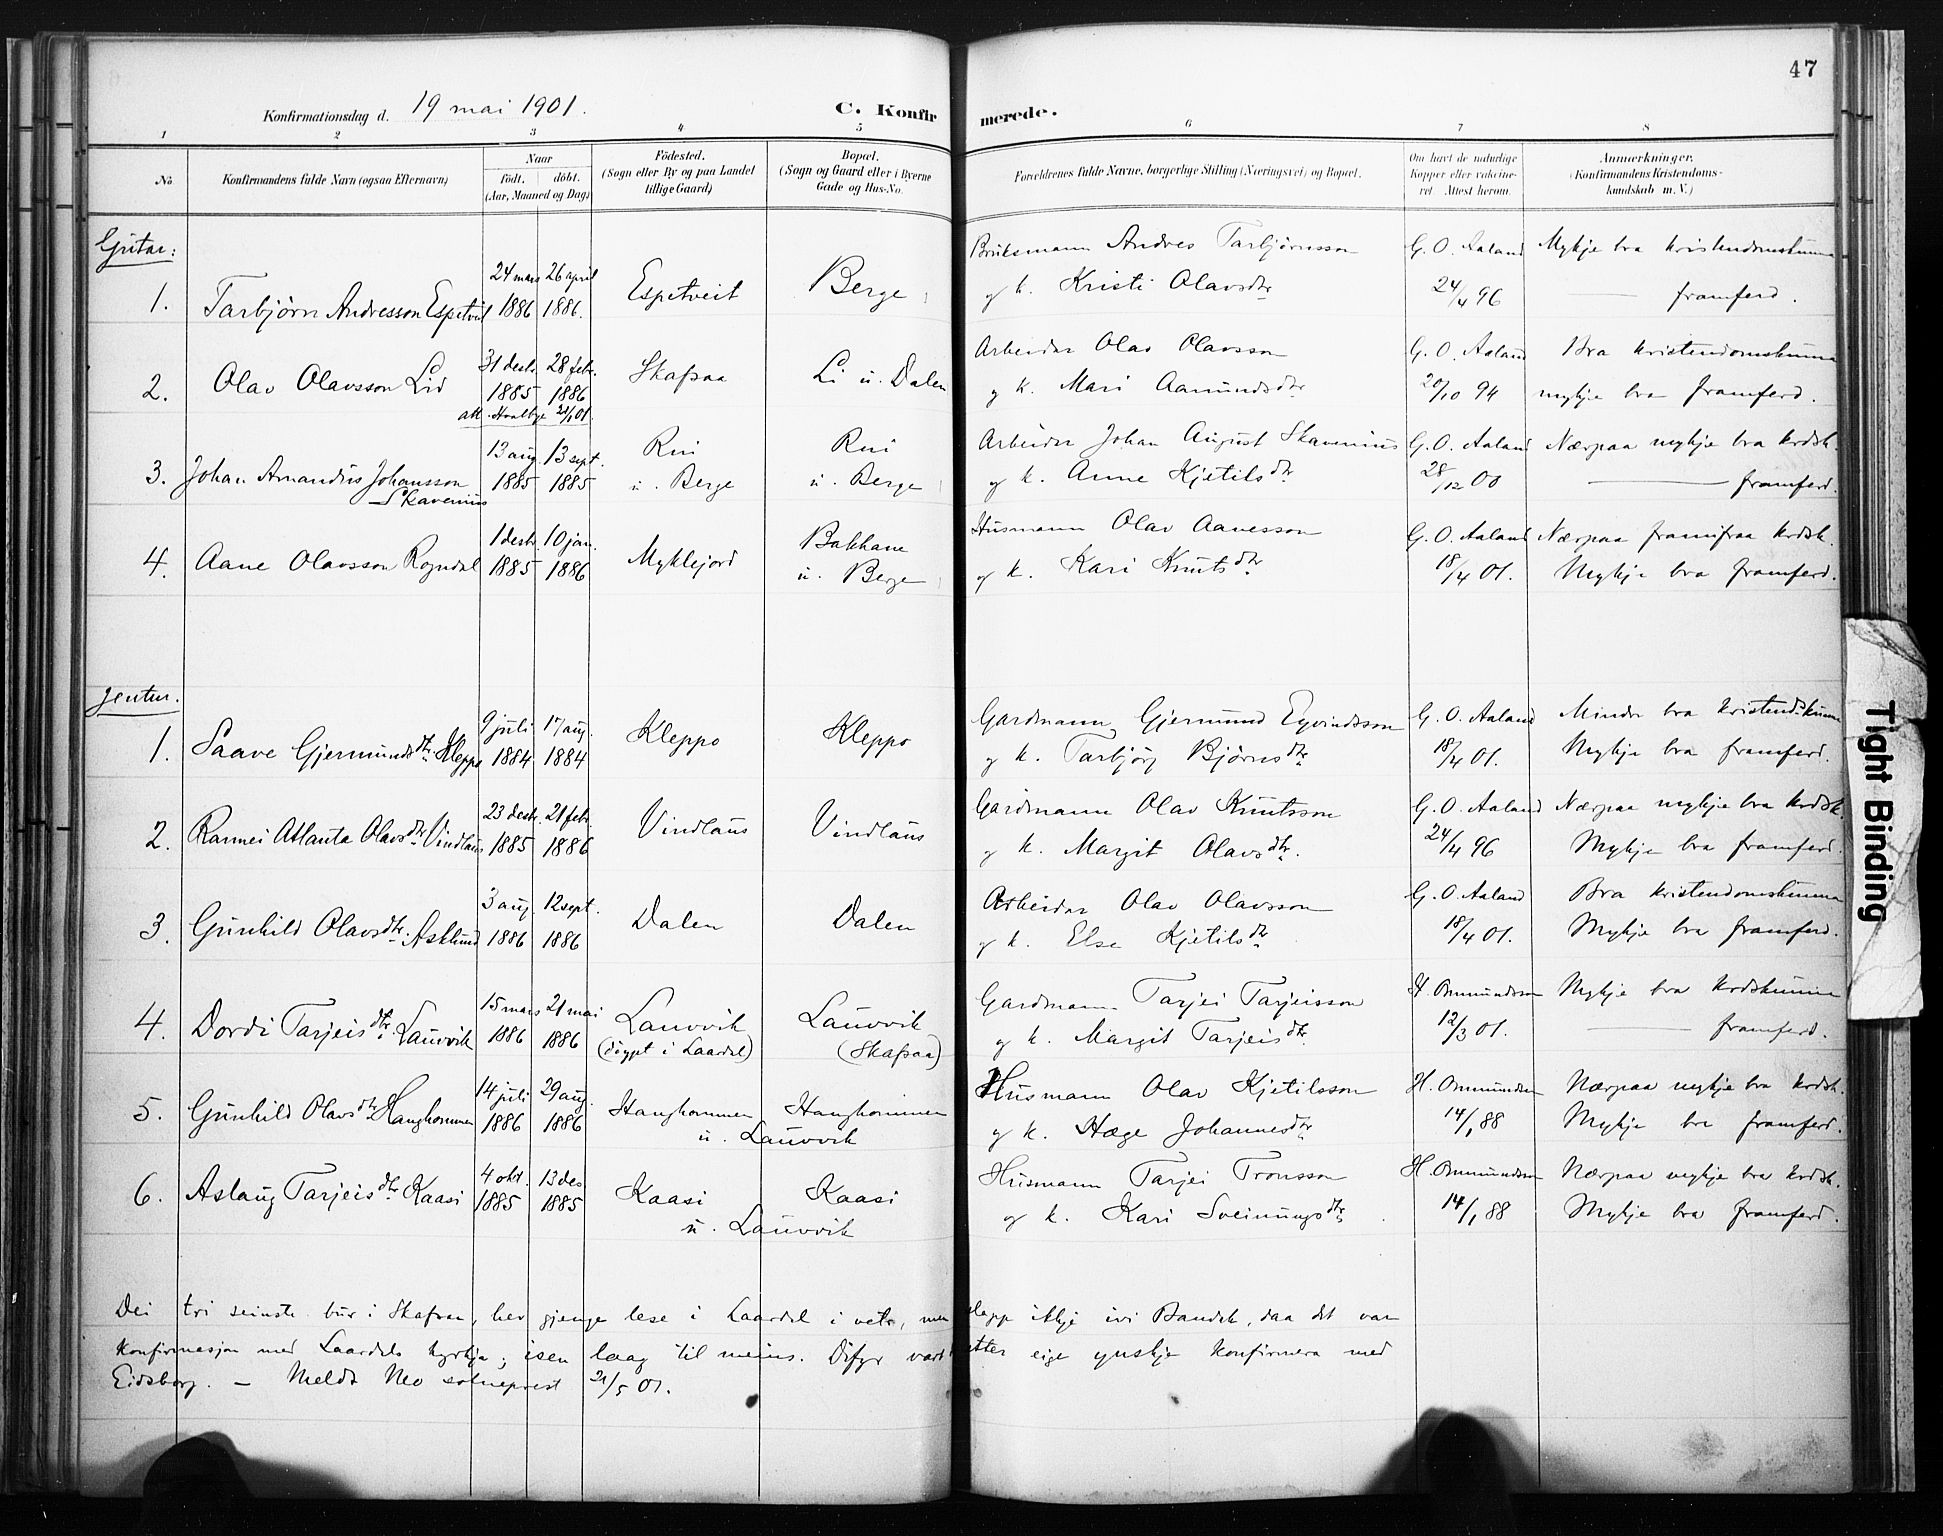 47
Konfirmationsdag d. 19 mai 1901.
C. Konfirmerede.
1 2 3 4 5 6 7 8
No.
Konfirmandens fulde Navn (ogsaa Efternavn)
Naar
födt. döbt.
(Aar, Maaned og Dag)
Födested.
(Sogn eller By og paa Landet
tillige Gaard)
Bopæl.
(Sogn og Gaard eller i Byerne
Gade og Hus-No.
Forældrenes fulde Navne, borgerlige Stilling (Næringsvei) og Bopæl.
Om havt de naturlige
Kopper eller vakcine-
ret. Attest herom.
Anmærkninger.
(Konfirmandens Kristendoms-
kundskab m. V.)
Gutar:
24 mars 26 april Bruksmann Andres Tarbjørnsson G. O. Aaland Mykje bra kristendomskunna
1. Tarbjørn Andresson Espetveit 1886 1886. Espetveit Berge og k. Kristi Olavsdtr 24/4 96 — framferd.
31 desbr. 28 febr. Arbeidar Olav Olavsson G. O. Aaland Bra kristendomskunna
2. Olav Olavsson Lid 1885 1886 Skafsaa Li u. Dalen og k. Mari Aamundsdtr 20/10 94 mykje bra framferd.
att. Hvalbye 21/1 01.
13 aug 13 sept. Rui Rui Arbeidar Johan August Skavenius G. O. Aaland Nærpaa mykje bra krdsk.
3. Johan Amandus Johansson 1885 1885 u. Berge u. Berge og k. Anne Kjetilsdtr 28/12 00 — framferd.
Skavenius
1 desbr. 10 jan. Bakkane Husmann Olav Aanesson G. O. Aaland Nærpaa framifraa krdsk.
4. Aane Olavsson Rogndal 1885 1886 Myklejord u. Berge og k. Kari Knutsdtr 18/4 01. Mykje bra framferd.
Jentur.
9 juli 17 aug. Gardmann Gjermund Eyvindsson G. O. Aaland Mindre bra kristendskunna
1. Saave Gjermundsdtr. Kleppo 1884 1884 Kleppo Kleppo og k. Tarbjørg Bjørnsdtr. 18/4 01. Mykje bra framferd.
23 desbr. 21 febr. Gardmann Olav Knutsson G. O. Aaland Nærpaa mykje bra krdsk.
2. Ranmei Atlanta Olavsdtr. Vindlaus 1885 1886 Vindlaus Vindlaus og k. Margit Olavsdtr. 24/4 96 Mykje bra framferd.
3 aug. 12 sept. Arbeidar Olav Olavsson G. O. Aaland Bra kristendomskunna
3. Gunhild Olavsdtr. Asklund 1886 1886 Dalen Dalen og k. Else Kjetilsdtr 18/4 01. Mykje bra framferd.
15 mars 21 mai Gardmann Tarjei Tarjeisson H. Ommundsen Mykje bra krdskunna
4. Dordi Tarjeisdtr. Lauvvik 1886 1886 Lauvvik Lauvvik og k. Margit Tarjeisdtr. 12/3 01. — framferd.
(døypt i Laardal) (Skafsaa)
14 juli 29 aug. Husmann Olav Kjetilsson H. Ommundsen Nærpaa mykje bra krdsk.
5. Gunhild Olavsdtr Haughommen 1886 1886 Haughommen Haughommen og k. Hæge Johannesdtr 14/1 88 Mykje bra framferd.
u. Lauvvik
4 okt. 13 des. Husmann Tarjei Tronsson H. Ommundsen Nærpaa mykje bra krdsk.
6. Aslaug Tarjeisdtr. Kaasi 1885 1885 Kaasi Kaasi og k. Kari Sveinungsdtr. 14/1 88 Mykje bra framferd.
u. Lauvvik
Dei tri seinste bur i Skafsaa, hev gjenge lese i Laardal i vetr, men slapp ikkje ivi Bandak, daa det var
konfirmasjon med Laardals kyrkja; isen laag til meins. Difyr vart etter eige ynskje konfirmera med
Eidsborg. — Meldt Neo sokneprest 21/5 01.
Tight Binding